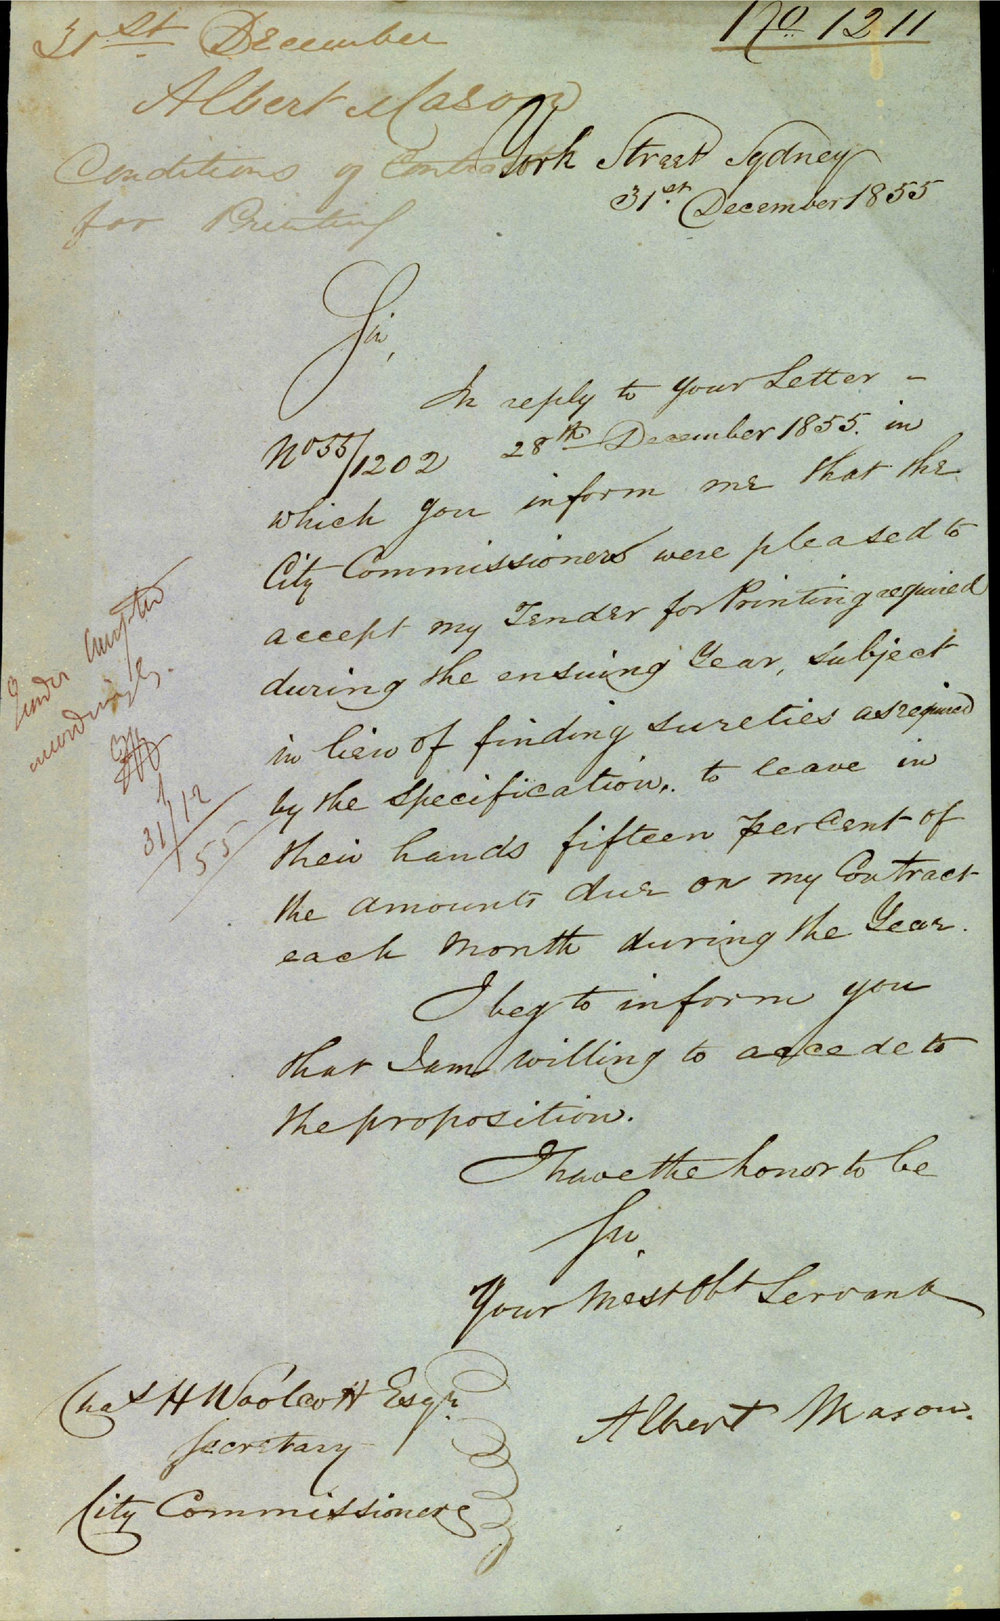 No. 1211
31st December
Albert Mason
Conditions of Contract
for Printing
York Street Sydney
31st December 1855
Sir,
In reply to your Letter -
No 55/1202 28th December 1855. in
which you inform me that the
City Commissioners were pleased to
accept my Tender for Printing required
during the ensuing Year, subject
in lieu of finding sureties as required
by the Specification, to leave in
their hands fifteen per Cent of
the amounts due on my Contract
each Month during the Year.
I beg to inform you
that I am willing to accede to
the proposition.
I have the honor to be
Sir.
Your Most Obt Servant
Albert Mason.
Chas H Woolcott Esqr.
Secretary
City Commissioners
Tender accepted
accordingly.
31/12/55